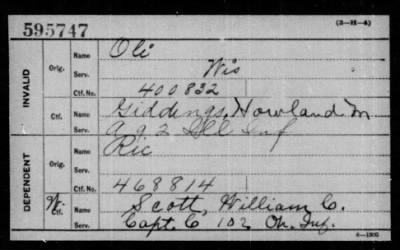 595747 (3-H-4)
INVALID
Orig. Name Oli
Serv. Wis
Ctf. No. 400832
Ctf. Name Giddings, Howland M
Serv. A 92 Ill Inf
DEPENDENT
Orig. Name Ric
Serv.
Ctf. No. 468814
W. Ctf. Name Scott, William C.
Serv. Capt. C 102 Oh. Inf.